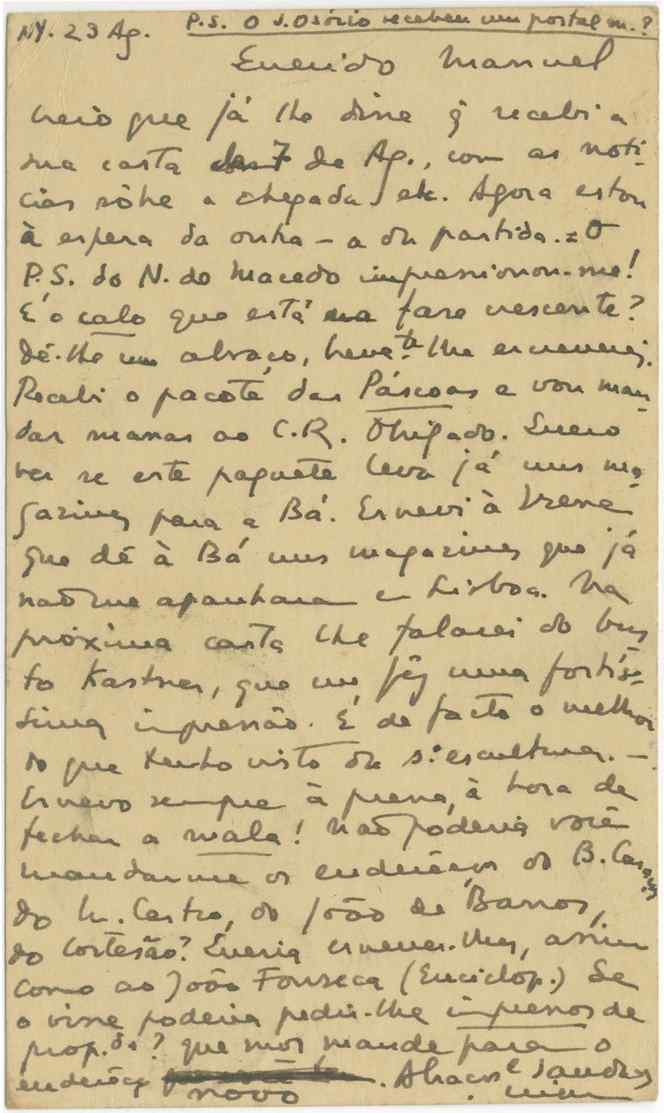 NY. 23 Ag. P.S. O J. Osório recebeu um postal m.?
Querido Manuel
Creio que já lhe disse q̃ recebi a
sua carta de 7 de Ag., com as notí-
cias sôbre a chegada, etc. Agora estou
à espera da outra – a da partida. = O
P.S. do N. do Macedo impressionou-me!
É o calo que está na fase crescente?
Dê-lhe um abraço, breve lhe escreverei.
Recebi o pacote das Páscoas e vou man-
dar massas ao C.R. Obrigado. Quero
ver se este paquete leva já uns ma-
gazines para a Bá. Escrevi à Irene
que dê à Bá uns magazines que já
não me apanharam em Lisboa. Na
próxima carta lhe falarei do bus-
to Kastner, que me fêz uma fortís-
sima impressão. É de facto o melhor
do que tenho visto da s/ escultura. –
Escrevo sempre à pressa, à hora de
fechar a mala! Não poderia você
mandar-me os endereços do B.
do M. Castro, do João de Barros,
do Cortesão? Queria escrever-lhes, assim
como ao João Fonseca (Enciclop.) Se
o visse poderia pedir-lhe impressos de
prop.da? que mos mande para o
endereço novo. Abraços e saudades